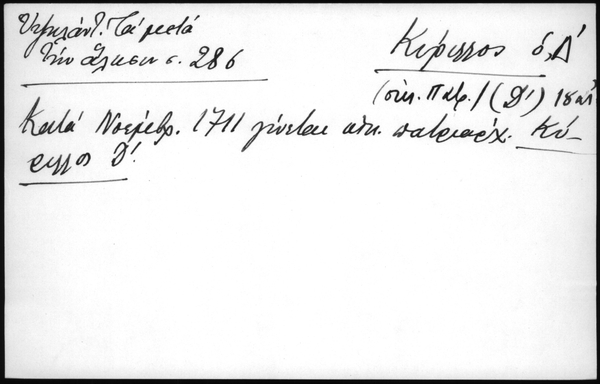 Ὑψηλάντ. Τά μετά
τήν ἅλωσιν σ. 286
Κύριλλος ὁ Δ΄
(οἰκ. Πατρ.) (Δ΄) 18 αἰ
Κατά Νοέμβρ. 1711 γίνεται οἰκ. πατριάρχ. Κύ-
ριλλος Δ΄.